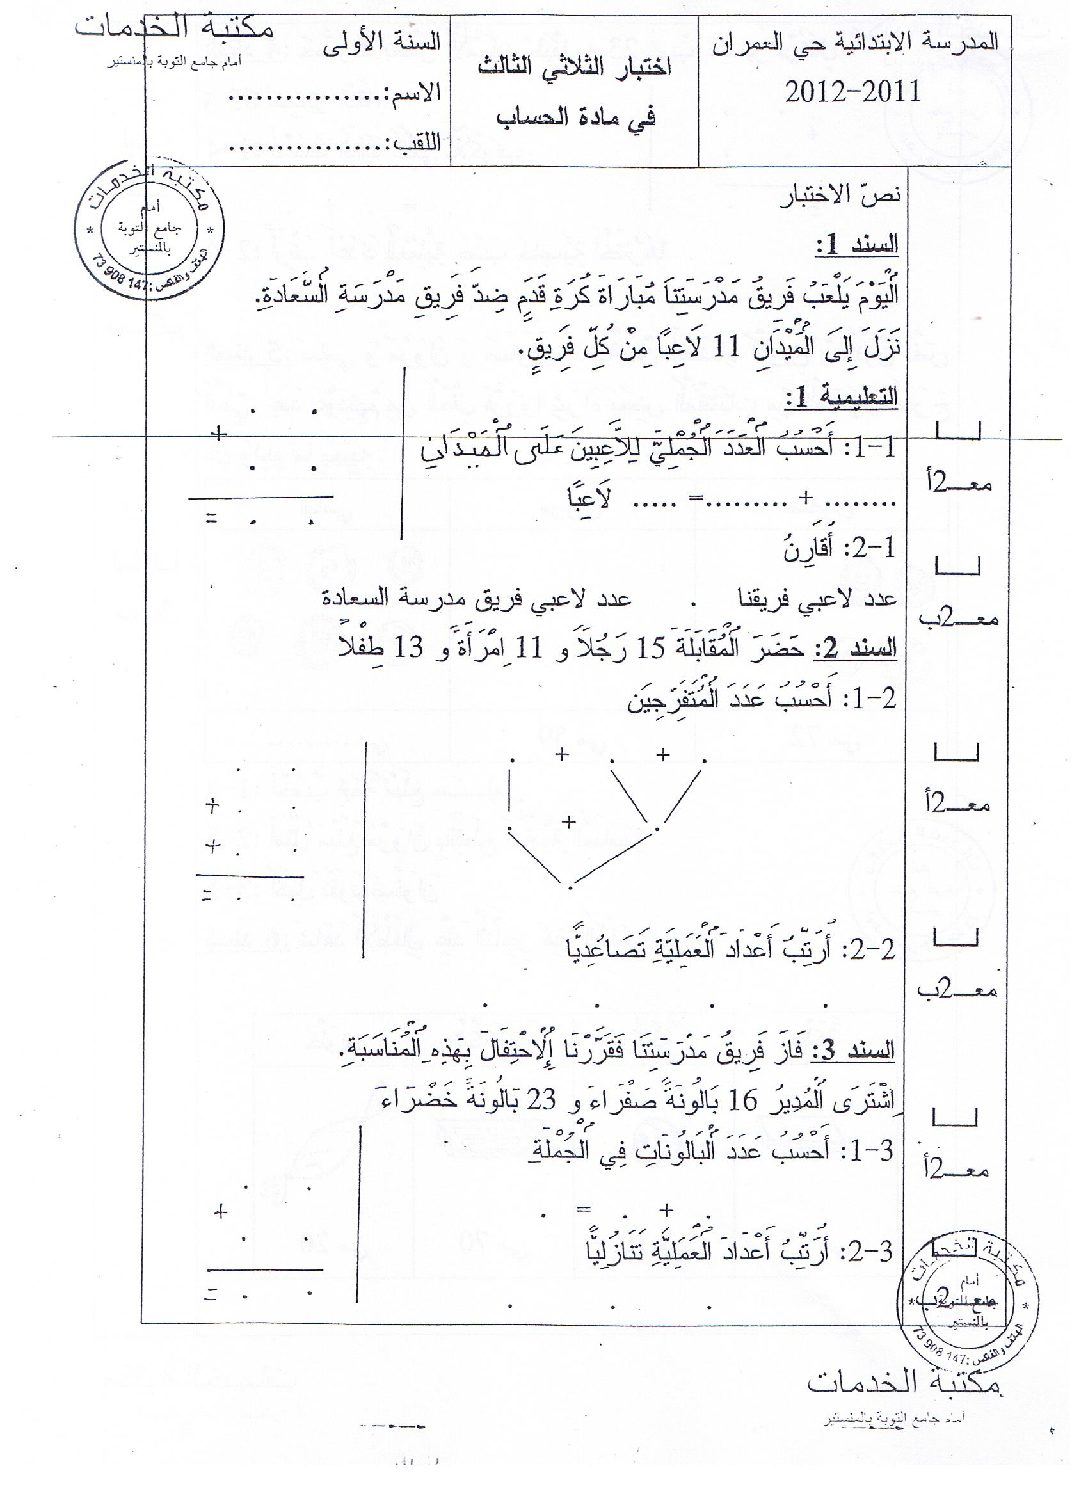 مكتبة الخدمات
أمام جامع التوبة بالمنستير
المدرسة الابتدائية حي العمران
2012-2011
اختبار الثلاثي الثالث
في مادة الحساب
السنة الأولى
الاسم:................
اللقب:................
مكتبة الخدمات
أمام
جامع التوبة
بالمنستير
الهاتف والفاكس: 147 908 73
نصّ الاختبار
السند 1:
اَلْيَوْمَ يَلْعَبُ فَرِيقُ مَدْرَسَتِنَا مُبَارَاةَ كُرَةِ قَدَمٍ ضِدَّ فَرِيقِ مَدْرَسَةِ السَّعَادَةِ.
نَزَلَ إِلَى الْمَيْدَانِ 11 لَاعِبًا مِنْ كُلِّ فَرِيقٍ.
التعليمية 1:
1-1: أَحْسُبُ الْعَدَدَ الْجُمْلِيَّ لِلاَّعِبِينَ عَلَى الْمَيْدَانِ
........ + .........= ..... لَاعِبًا
+
=
معــ2أ
2-1: أُقَارِنُ
عدد لاعبي فريقنا . عدد لاعبي فريق مدرسة السعادة
معــ2ب
السند 2: حَضَرَ الْمُقَابَلَةَ 15 رَجُلاً و 11 اِمْرَأَةً و 13 طِفْلاً
1-2: أَحْسُبُ عَدَدَ الْمُتَفَرِّجِينَ
. + . + .
. + .
.
+
+
=
معــ2أ
2-2: أُرَتِّبُ أَعْدَادَ الْعَمَلِيَّةِ تَصَاعُدِيًّا
. . . .
معــ2ب
السند 3: فَازَ فَرِيقُ مَدْرَسَتِنَا فَقَرَّرْنَا الْاحْتِفَالَ بِهَذِهِ الْمُنَاسَبَةِ.
اِشْتَرَى الْمُدِيرُ 16 بَالُونَةً صَفْرَاءَ و 23 بَالُونَةً خَضْرَاءَ
1-3: أَحْسُبُ عَدَدَ الْبَالُونَاتِ فِي الْجُمْلَةِ
. + . = .
+
=
معــ2أ
2-3: أُرَتِّبُ أَعْدَادَ الْعَمَلِيَّةِ تَنَازُلِيًّا
. . .
معــ2ب
مكتبة الخدمات
أمام
جامع التوبة
بالمنستير
الهاتف والفاكس: 147 908 73
مكتبة الخدمات
أمام جامع التوبة بالمنستير